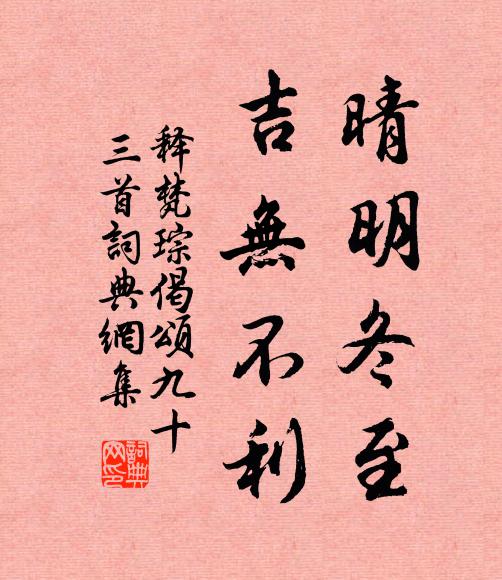 晴明冬至
吉無不利
釋梵琮偈頌九十
三首詞典網集
詞典網印